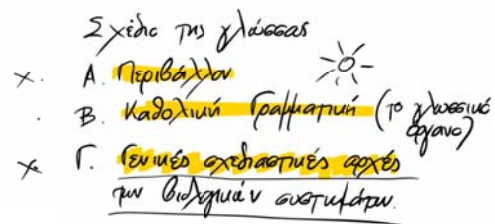 Σχέδιο της γλώσσας
x. Α. Περιβάλλον
. Β. Καθολική Γραμματική (το γλωσσικό όργανο)
x Γ. Γενικές σχεδιαστικές αρχές
των βιολογικών συστημάτων.